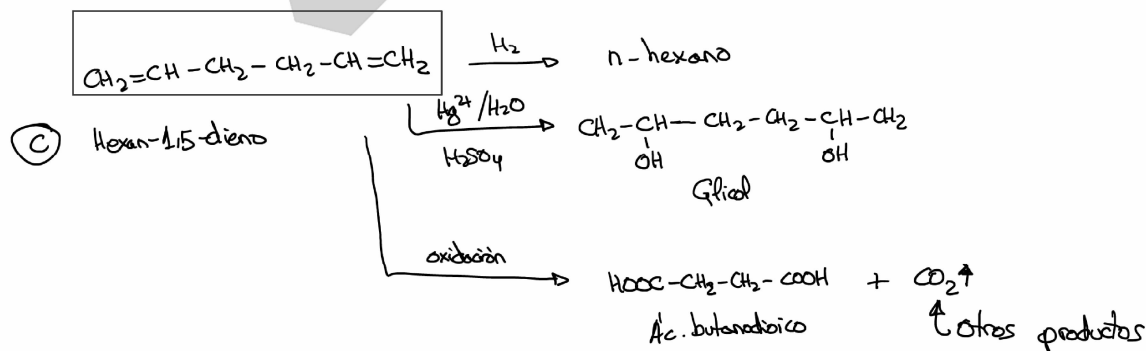 CH₂=CH-CH₂-CH₂-CH=CH₂ H₂ n-hexano
C Hexan-1,5-dieno
Hg²⁺/H₂O
H₂SO₄
CH₂-CH-CH₂-CH₂-CH-CH₂
OH OH
Glicol
oxidación HOOC-CH₂-CH₂-COOH + CO₂↑
Ác. butanodioico ↑ otros productos